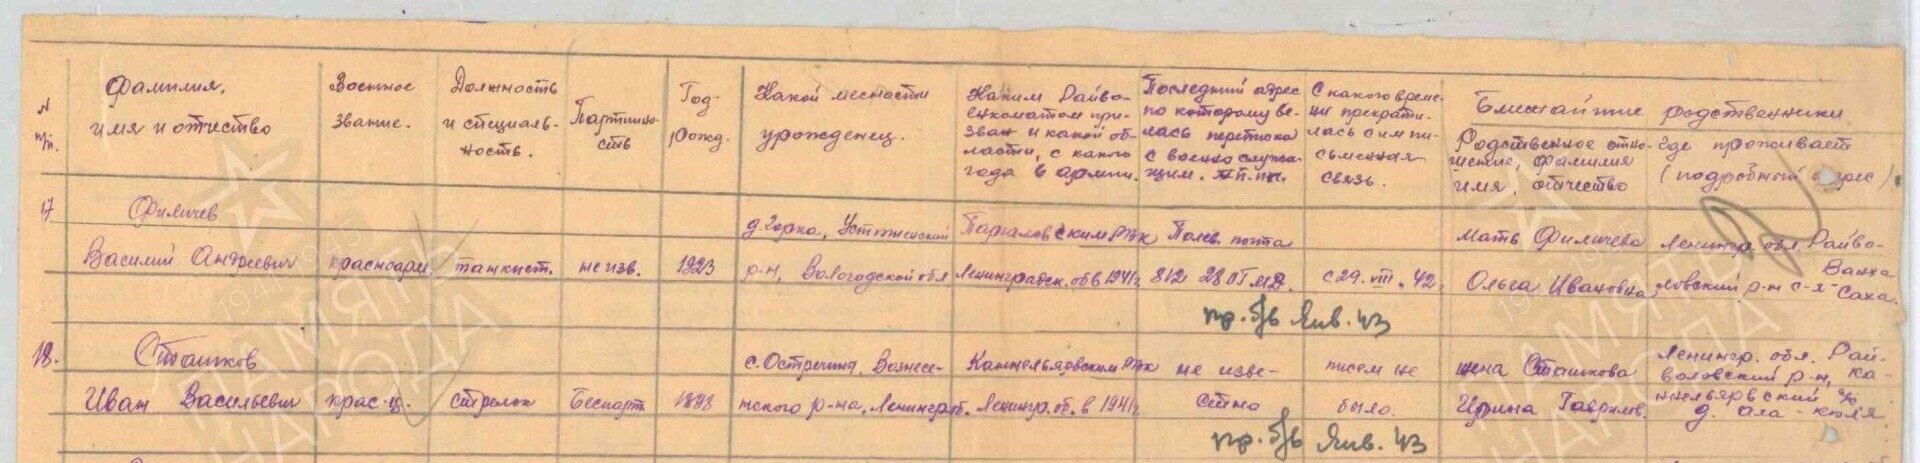 N п/п.
Фамилия, имя и отчество
Военное звание.
Должность и специальность.
Партийность
Год рожд.
Какой месности урожденец.
Каким Райвоенкоматом призван и какой области, с какого года в армии.
Последний адрес по которому велась переписка с военнослужащим. п.п.
С какого времени прекратилась с им письменная связь.
Ближайшие родственники.
Родственное отношение, фамилия имя, отчество
Где проживает (подробный адрес)
17
Филичев
Василий Андреевич
красноарм.
танкист.
неизв.
1923
д. Горка, Устюженский
р-н, Вологодской обл
Паргаловским РВК
Ленинградск. об в 1941г.
Полев. почта
812 28 ОГМД.
с 29. VIII. 42г
Мать Филичева
Ольга Ивановна
Ленингр. обл. Райво-
ловский р-н с-я
Ванха
Саха.
пр. б/в Янв. 43
18.
Сташков
Иван Васильевич
крас-ц.
стрелок
Беспарт.
1898
с. Остречина, Вознесе-
нского р-на, Ленингр. об.
Каннельярвским РВК
Ленингр. об. в 1941г.
не изве-
стно
писем не
было.
жена Сташкова
Ирина Гаврилов.
Ленингр. обл. Рай-
воловский р-н, ка-
ннельярвский с/с
д. Ала-Кюля
пр. б/в Янв. 43
ПАМЯТЬ
НАРОДА
1941-1945